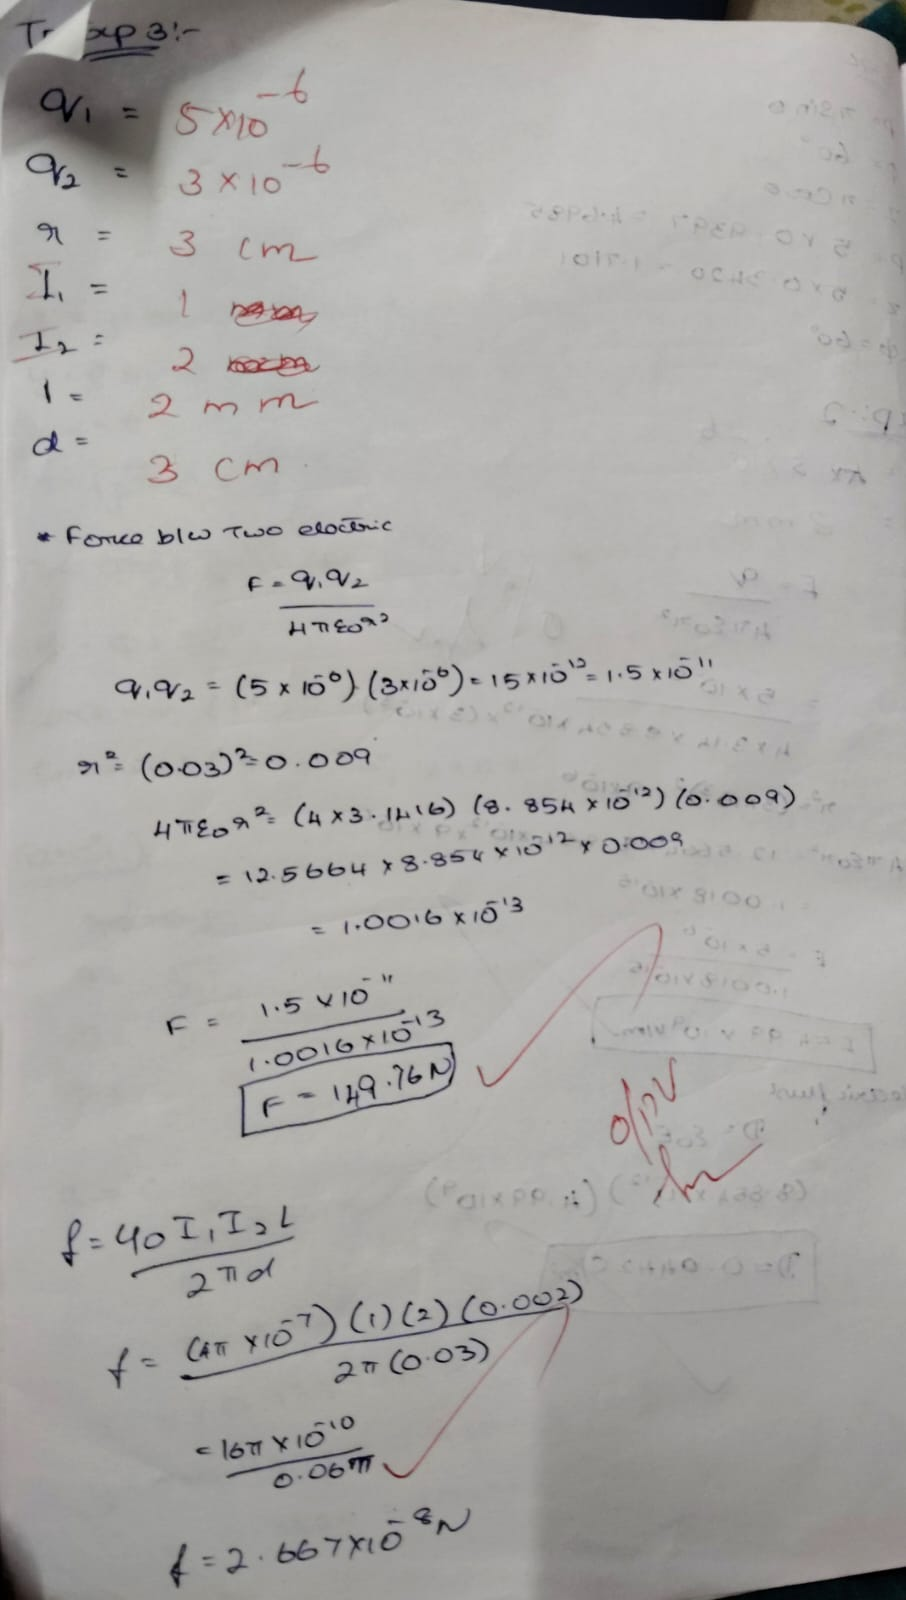 exp 3:-
q₁ = 5×10⁻⁶
q₂ = 3×10⁻⁶
r = 3 cm
I₁ = 1
I₂ = 2
l = 2 mm
d = 3 cm
* Force b/w Two electric
F = q₁q₂
4πε0r²
q₁q₂ = (5×10⁻⁶) (3×10⁻⁶) = 15×10⁻¹² = 1.5×10⁻¹¹
r² = (0.03)² = 0.009
4πε0r² = (4×3.1416) (8.854×10⁻¹²) (0.009)
= 12.5664×8.854×10⁻¹²×0.009
= 1.0016×10⁻¹³
F = 1.5×10⁻¹¹
1.0016×10⁻¹³
F = 149.76N
O/P✓
f = 40 I₁I₂L
2πd
f = (4π×10⁻⁷) (1) (2) (0.002)
2π(0.03)
= 16π×10⁻¹⁰
0.06π
f = 2.667×10⁻⁸N